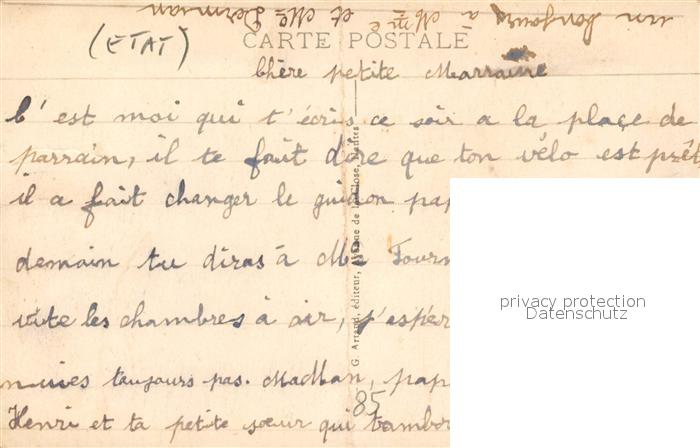 un bonjour à Mme et Mr
(ETAT)
CARTE POSTALE
Chère petite Marraine
C'est moi qui t'écris ce soir a la place de
parrain, il te fait dire que ton vélo est prêt,
il a fait changer le guidon pap
demain tu diras à Mr Fourn
vite les chambres à air, j'espèr
nuies toujours pas. Madman, pap
Henri et ta petite soeur qui t'embor
G. Artaud, éditeur, de la Close, Nantes
85
privacy protection
Datenschutz